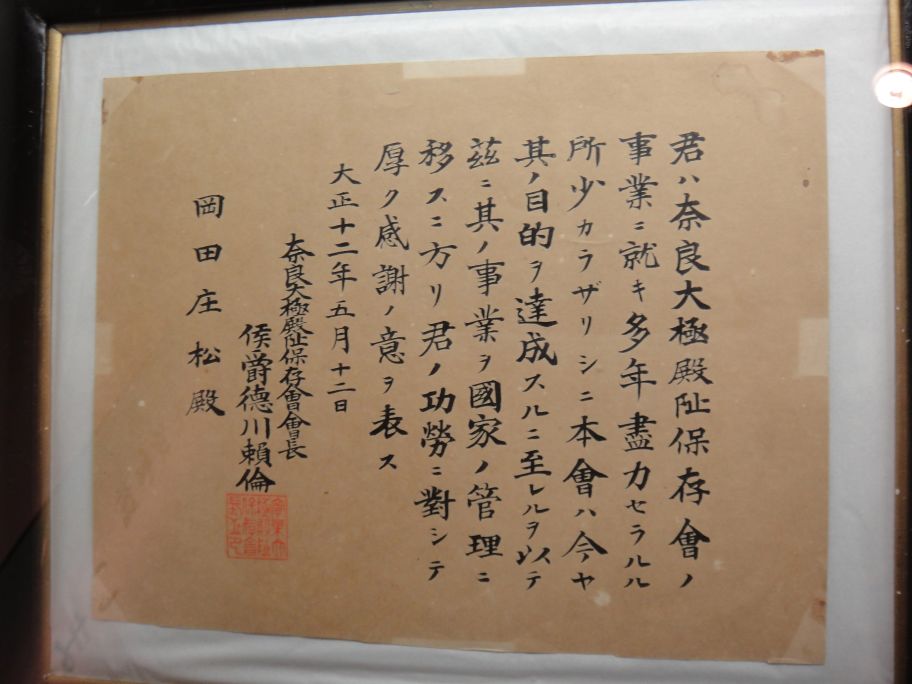 君ハ奈良大極殿阯保存會ノ
事業ニ就キ多年盡力セラルル
所少カラザリシニ本會ハ今ヤ
其ノ目的ヲ達成スルニ至レルヲ以テ
茲ニ其ノ事業ヲ國家ノ管理ニ
移スニ方リ君ノ功勞ニ對シテ
厚ク感謝ノ意ヲ表ス
大正十二年五月十二日
奈良大極殿阯保存會會長
侯爵德川賴倫
岡田庄松殿